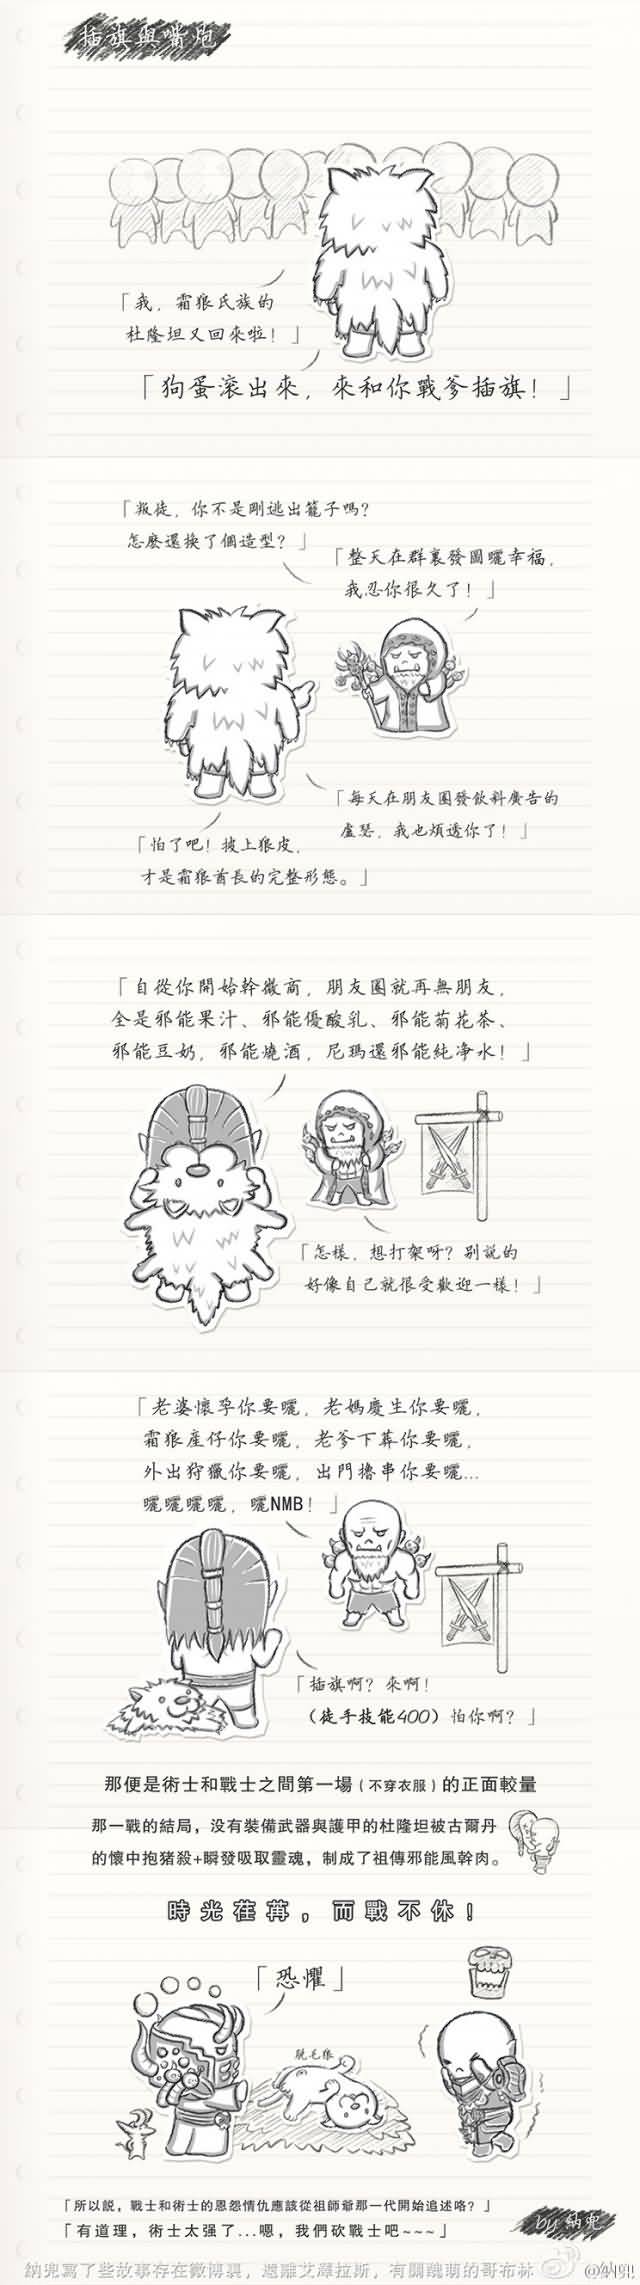 插旗與嘴炮
「我，霜狼氏族的
杜隆坦又回來啦！」
「狗蛋滾出來，來和你戰爹插旗！」
「叛徒，你不是剛逃出籠子嗎？
怎麼還換了個造型？」
「整天在群裏發圖曬幸福，
我忍你很久了！」
「每天在朋友圈發飲料廣告的
盧瑟，我也煩透你了！」
「怕了吧！披上狼皮，
才是霜狼酋長的完整形態。」
「自從你開始幹微商，朋友圈就再無朋友，
全是邪能果汁、邪能優酸乳、邪能菊花茶、
邪能豆奶，邪能燒酒，尼瑪還邪能純净水！」
「怎樣，想打架呀？别説的
好像自己就很受歡迎一樣！」
「老婆懷孕你要曬，老媽慶生你要曬，
霜狼産仔你要曬，老爹下葬你要曬，
外出狩獵你要曬，出門擼串你要曬...
曬曬曬曬，曬NMB！」
「插旗啊？來啊！
（徒手技能400）怕你啊？」
那便是術士和戰士之間第一場（不穿衣服）的正面較量
那一戰的結局，没有裝備武器與護甲的杜隆坦被古爾丹
的懷中抱猪殺+瞬發吸取靈魂，制成了祖傳邪能風幹肉。
時光荏苒，而戰不休！
「恐懼」
脱毛狼
「所以説，戰士和術士的恩怨情仇應該從祖師爺那一代開始追述咯？」
「有道理，術士太强了...嗯，我們砍戰士吧~~~」
by 納兜
納兜寫了些故事存在微博裏，遠離艾澤拉斯，有關醜萌的哥布林